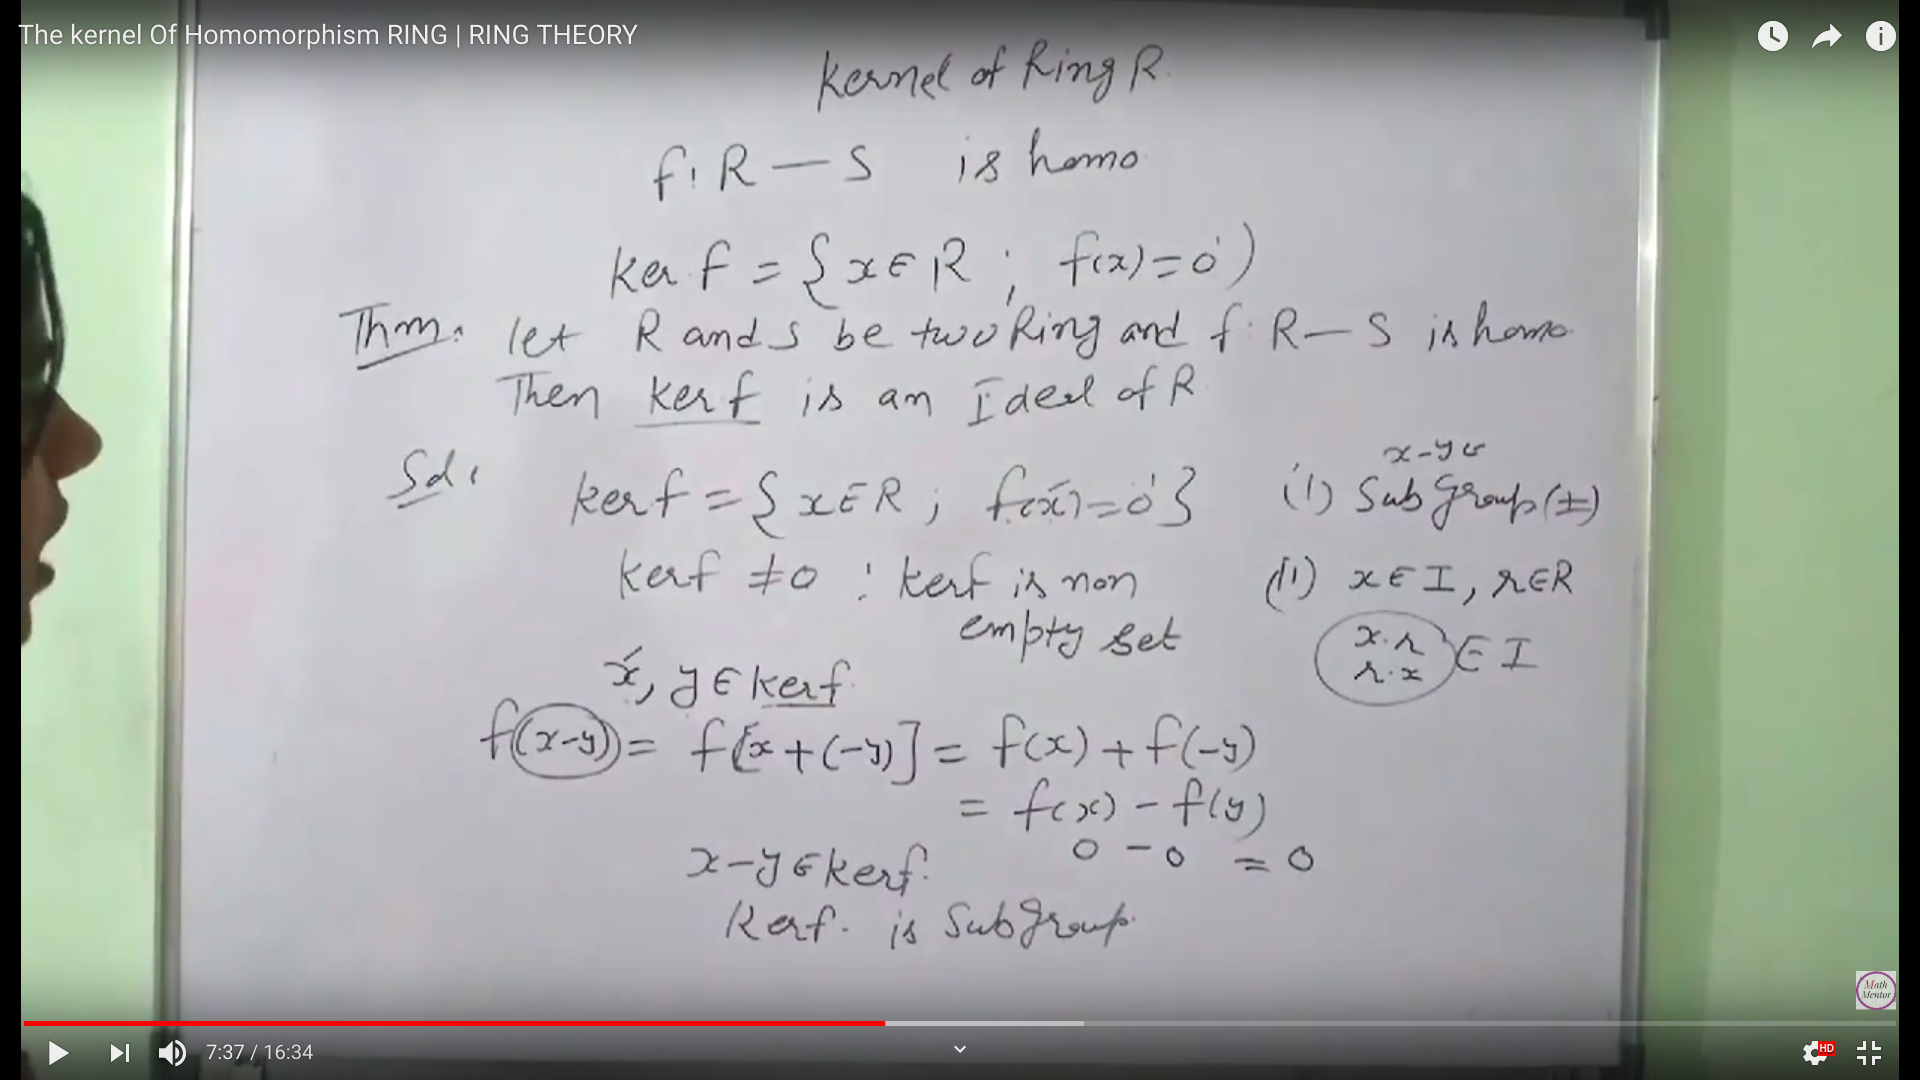 The kernel Of Homomorphism RING | RING THEORY
Kernel of Ring R.
f: R — S is homo
Ker f = { x ∈ R ; f(x) = 0' )
Thm: let R and S be two Ring and f: R — S is homo
Then Ker f is an Ideal of R
Sol:
Ker f = { x ∈ R ; f(x) = 0' }
x-y ∈
(I) Sub Group (±)
Ker f ≠ 0 : Ker f is non
empty set
(II) x ∈ I, r ∈ R
x·r
r·x ∈ I
x, y ∈ Ker f
f(x-y) = f[x + (-y)] = f(x) + f(-y)
= f(x) - f(y)
0 - 0 = 0
x-y ∈ Ker f.
Ker f. is Sub Group.
Math
Mentor
7:37 / 16:34
HD